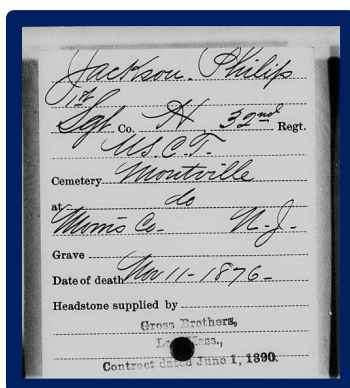 Jackson. Philip
1st
Sgt Co. H 32nd Regt.
U.S.C.T.
Cemetery Montville
at do
Morris Co- N-J-
Grave
Date of death Nov 11-1876-
Headstone supplied by
Gross Brothers,
Lee, Mass.,
Contract dated June 1, 1890.